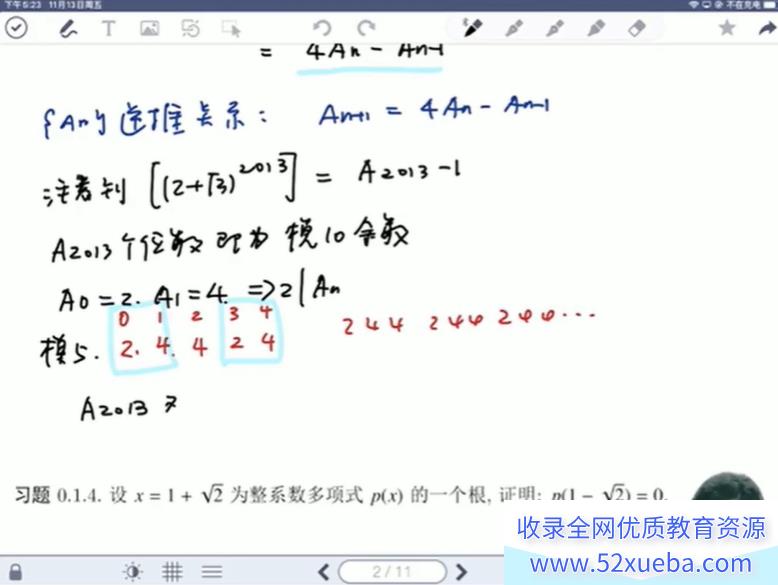 下午5:23 11月13日周五
不在充电
= 4An - An-1
{An} 递推关系: An+1 = 4An - An-1
注意到 [(2+√3)^2013] = A2013 -1
A2013 个位数 即为 模10余数
A0=2. A1=4. => 2 | An
0 1 2 3 4
2 4 4 2 4 4 2 4 4 ...
模5. 2. 4. 4 2 4
A2013
习题 0.1.4. 设 x = 1 + √2 为整系数多项式 p(x) 的一个根, 证明: p(1 − √2) = 0.
收录全网优质教育资源
www.52xueba.com
2 / 11